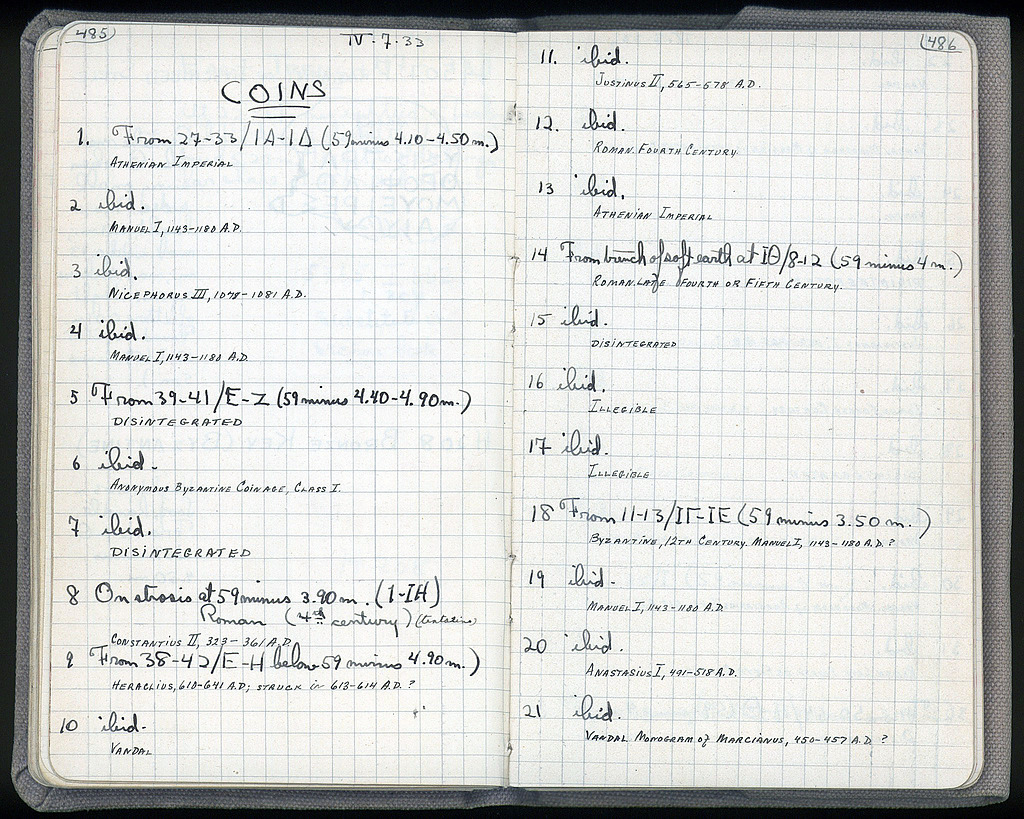 485
IV.7.33
COINS
1. From 27-33/ΙΑ-ΙΔ (59 minus 4.10-4.50 m.)
ATHENIAN IMPERIAL
2 ibid.
MANUEL I, 1143-1180 A.D.
3 ibid.
NICEPHORUS III, 1078-1081 A.D.
4 ibid.
MANUEL I, 1143-1180 A.D.
5 From 39-41/E-Z (59 minus 4.40-4.90 m.)
DISINTEGRATED
6 ibid.
ANONYMOUS BYZANTINE COINAGE, CLASS I.
7 ibid.
DISINTEGRATED
8 On strosis at 59 minus 3.90 m. (1-ΙΗ)
Roman (4th century) (tentative)
CONSTANTIUS II, 323-361 A.D.
9 From 38-42/E-H below 59 minus 4.90 m.)
HERACLIUS, 610-641 A.D; STRUCK in 613-614 A.D.?
10 ibid.
VANDAL
486
11. ibid.
JUSTINUS II, 565-578 A.D.
12. ibid.
ROMAN. FOURTH CENTURY
13 ibid.
ATHENIAN IMPERIAL
14 From trench of soft earth at ΙΘ/8-12 (59 minus 4 m.)
ROMAN. LATE FOURTH OR FIFTH CENTURY.
15 ibid.
DISINTEGRATED
16 ibid.
ILLEGIBLE
17 ibid.
ILLEGIBLE
18 From 11-13/ΙΓ-ΙΕ (59 minus 3.50 m.)
BYZANTINE, 12TH CENTURY. MANUEL I, 1143-1180 A.D.?
19 ibid.
MANUEL I, 1143-1180 A.D.
20 ibid.
ANASTASIUS I, 491-518 A.D.
21 ibid.
VANDAL MONOGRAM of MARCIANUS, 450-457 A.D. ?